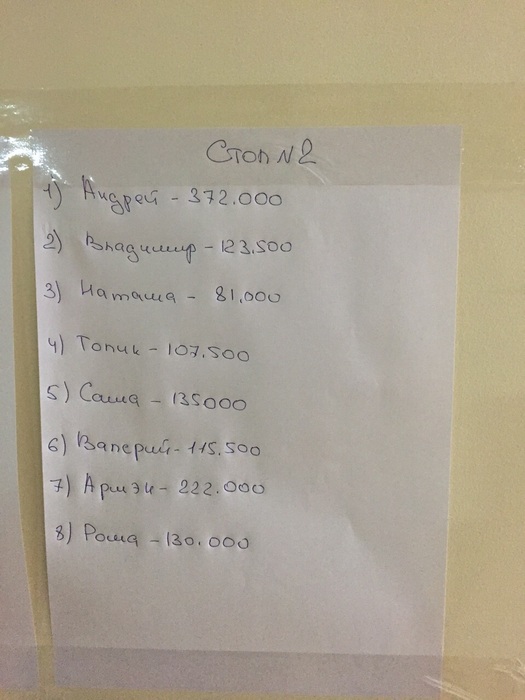 Стол N2
1) Андрей - 372.000
2) Владимир - 123.500
3) Наташа - 81.000
4) Толик - 107.500
5) Саша - 135000
6) Валерий - 115.500
7) Армэн - 222.000
8) Роша - 130.000